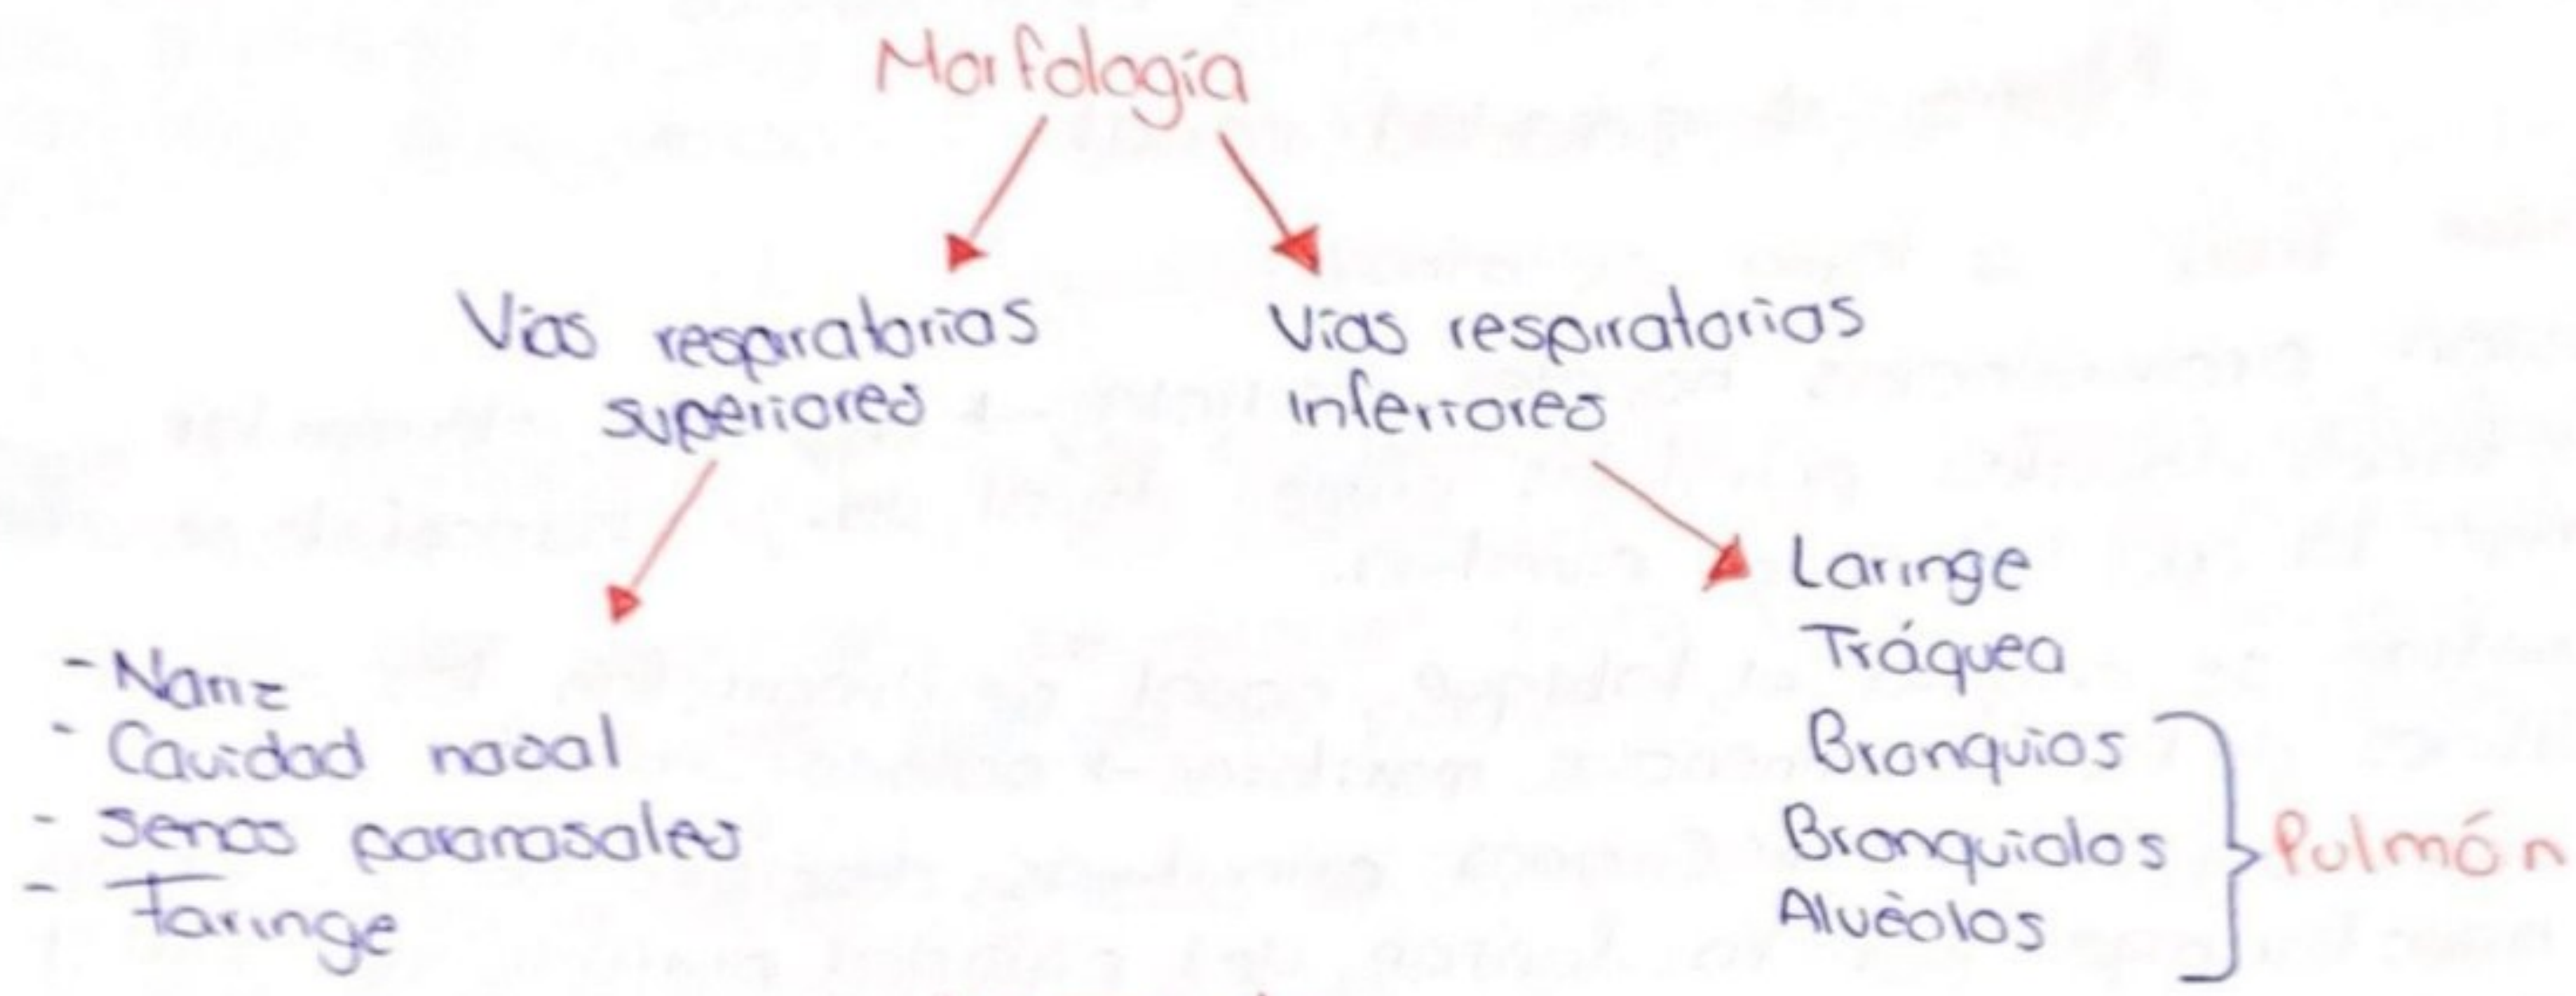 Morfología
Vías respiratorias
superiores
Vías respiratorias
inferiores
- Nariz
- Cavidad nasal
- senos paranasales
- Faringe
Laringe
Tráquea
Bronquios
Bronquiolos
Alvéolos
Pulmón